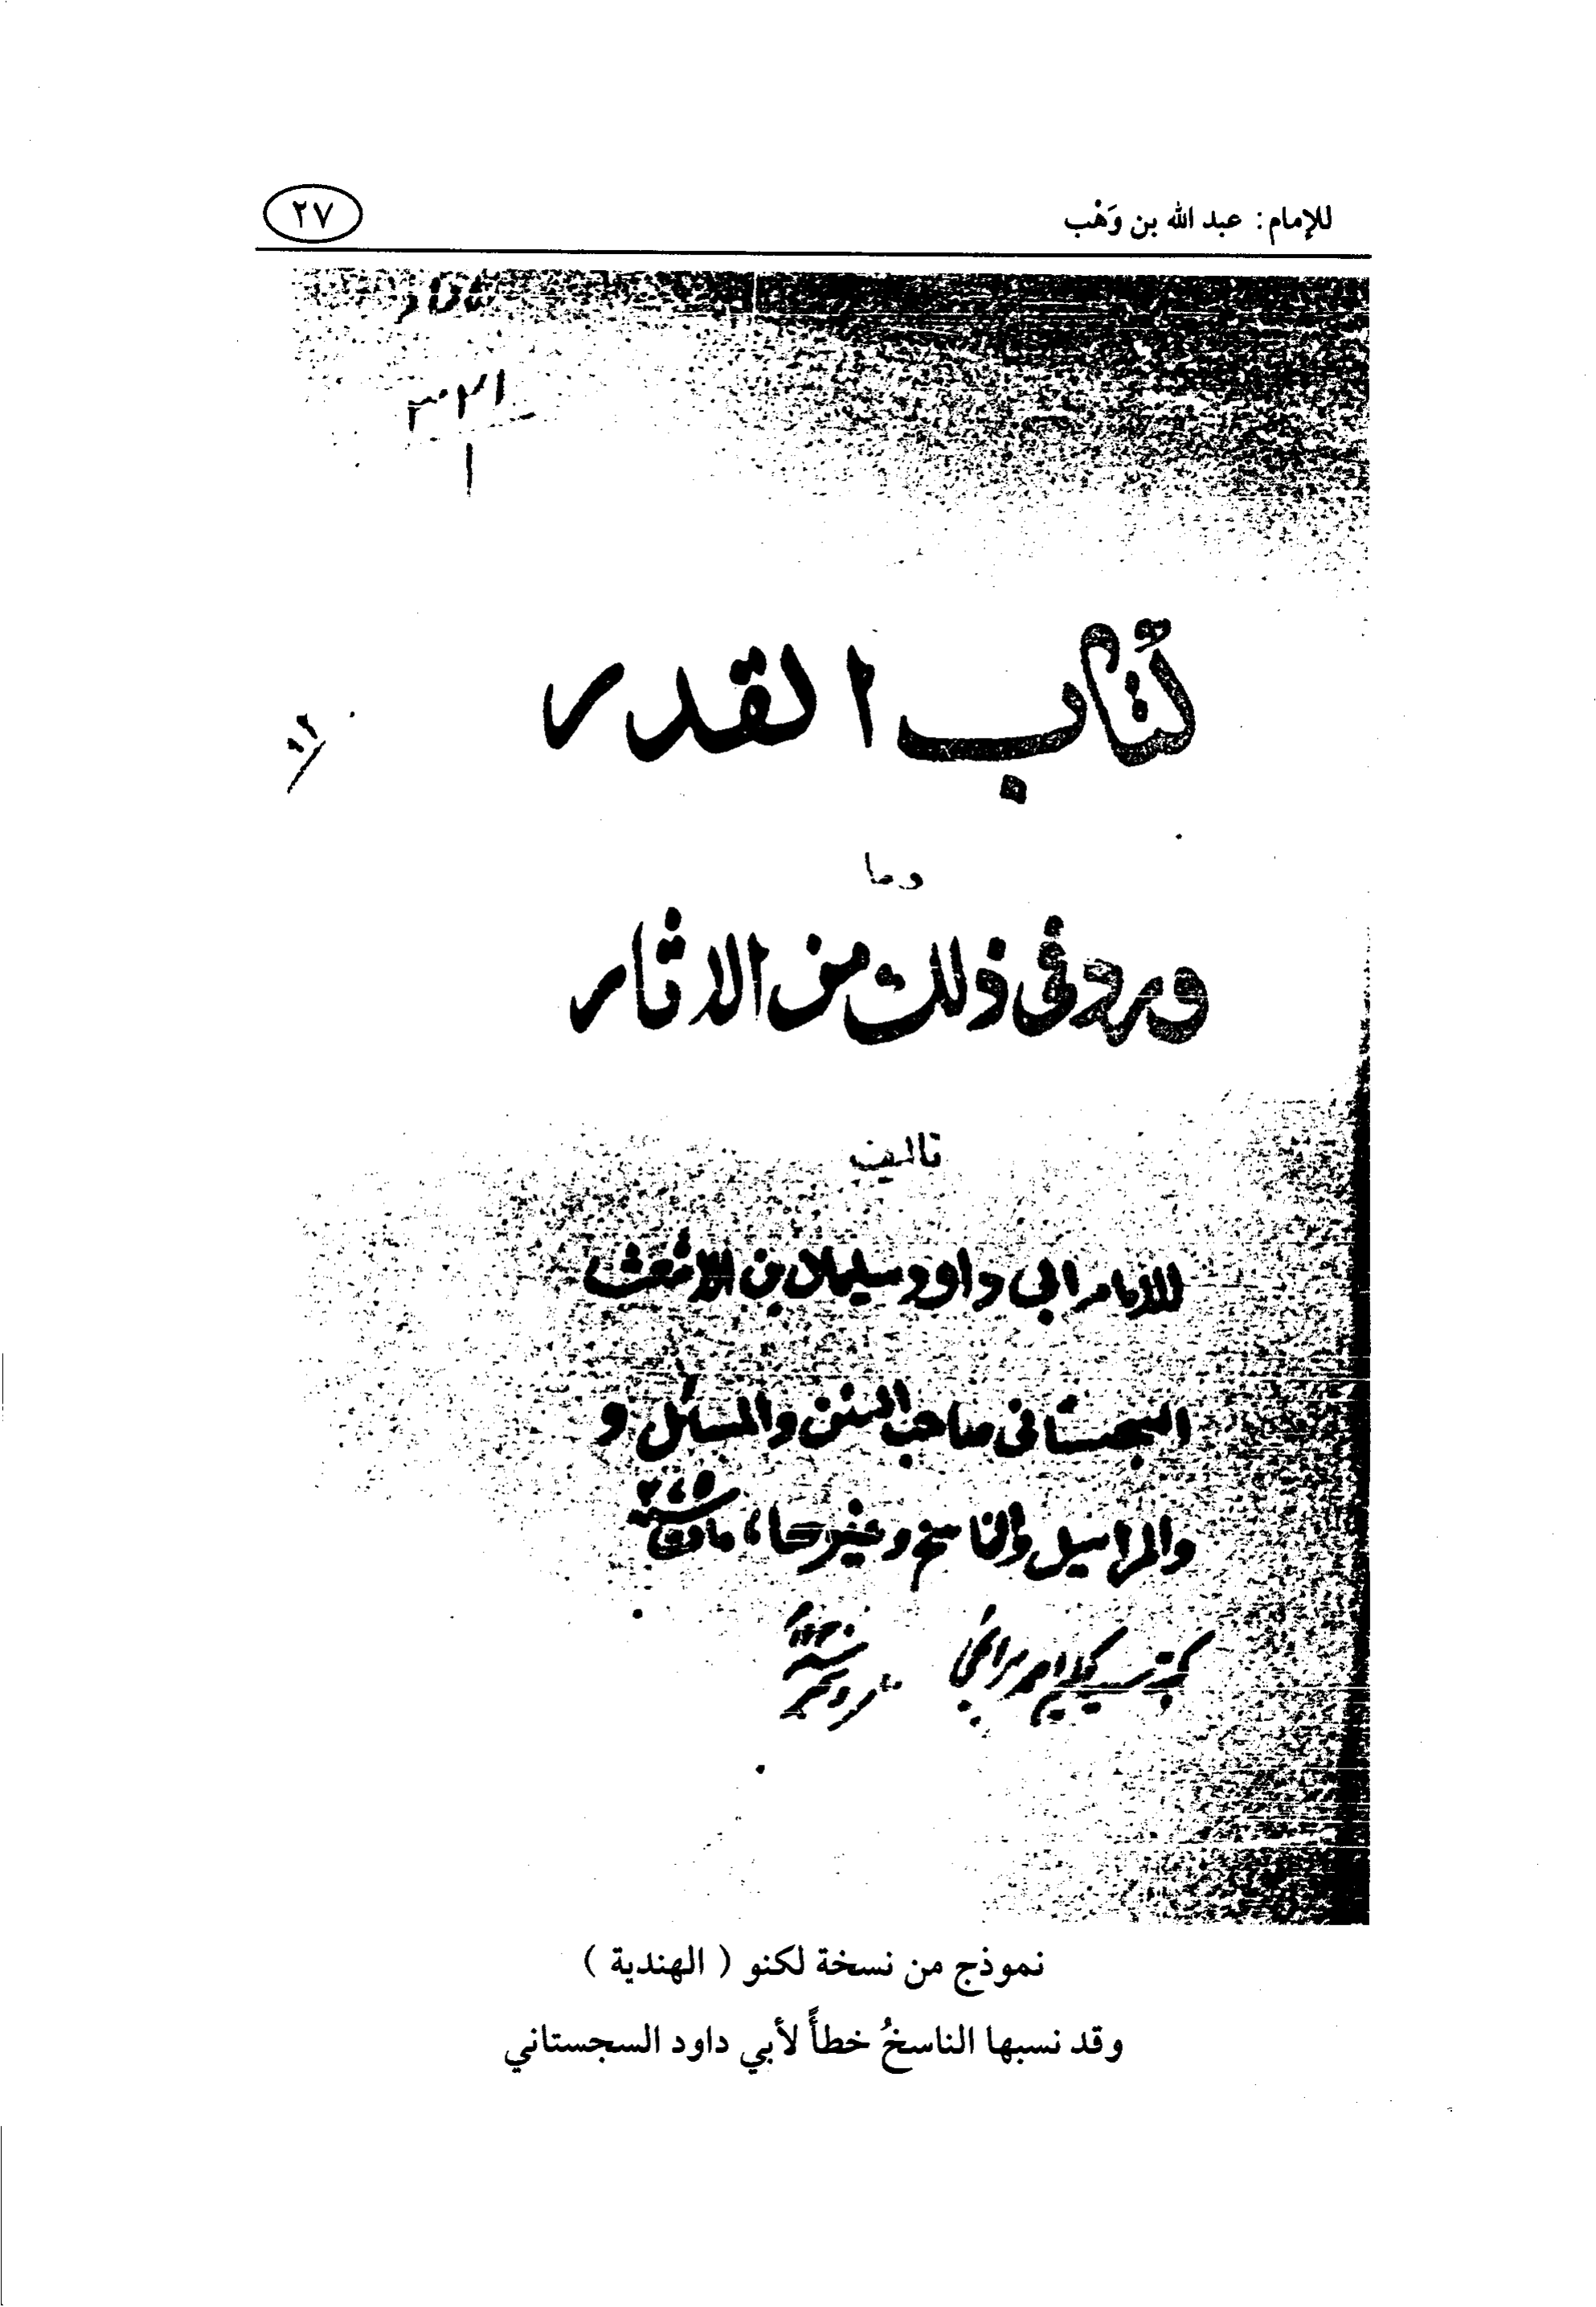 للإمام: عبد الله بن وَهْب
٢٧
كتاب القدر
وما
ورد في ذلك من الاثار
تاليف
للامام ابي داود سليمان بن الاشعث
السجستاني صاحب السنن والمسائل و
والمراسيل والناسخ وغيرها، مات سنة ٢٧٥
نموذج من نسخة لكنو ( الهندية )
وقد نسبها الناسخُ خطأً لأبي داود السجستاني